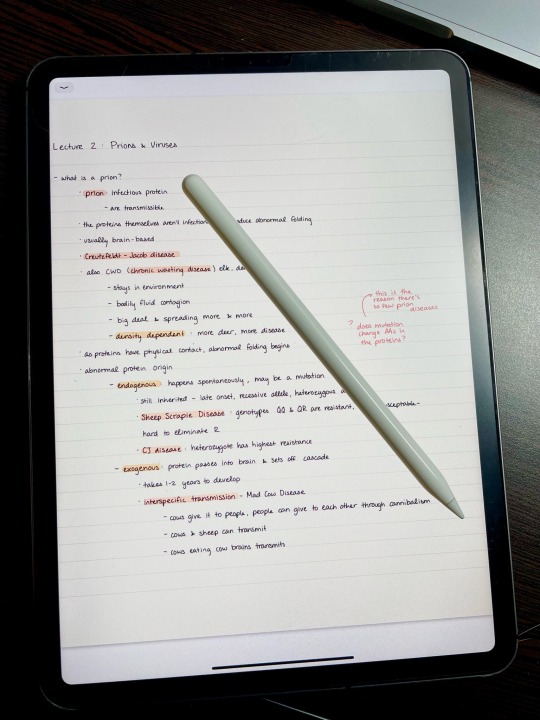 Lecture 2 : Prions & Viruses
- what is a prion?
· prion: infectious protein
- are transmissible
· the proteins themselves aren't infectious duce abnormal folding
· usually brain-based
· Creutzfeldt - Jacob disease
· also CWD (chronic wasting disease) elk,
- stays in environment
- bodily fluid contagion
- big deal & spreading more & more
- density dependent : more deer, more disease
· as proteins have physical contact, abnormal folding begins
· abnormal protein origin
- endogenous : happens spontaneously, may be a mutation
· still inherited - late onset, recessive allele, heterozygous
· Sheep Scrapie Disease : genotypes QQ & QR are resistant, sceptable-
hard to eliminate R
· CJ disease : heterozygote has highest resistance
- exogenous : protein passes into brain & sets off cascade
· takes 1-2 years to develop
· interspecific transmission - Mad Cow Disease
- cows give it to people, people can give to each other through cannibalism
- cows & sheep can transmit
- cows eating cow brains transmits
this is the
reason there's
so few prion
diseases
? does mutation
change AAs in
the proteins?